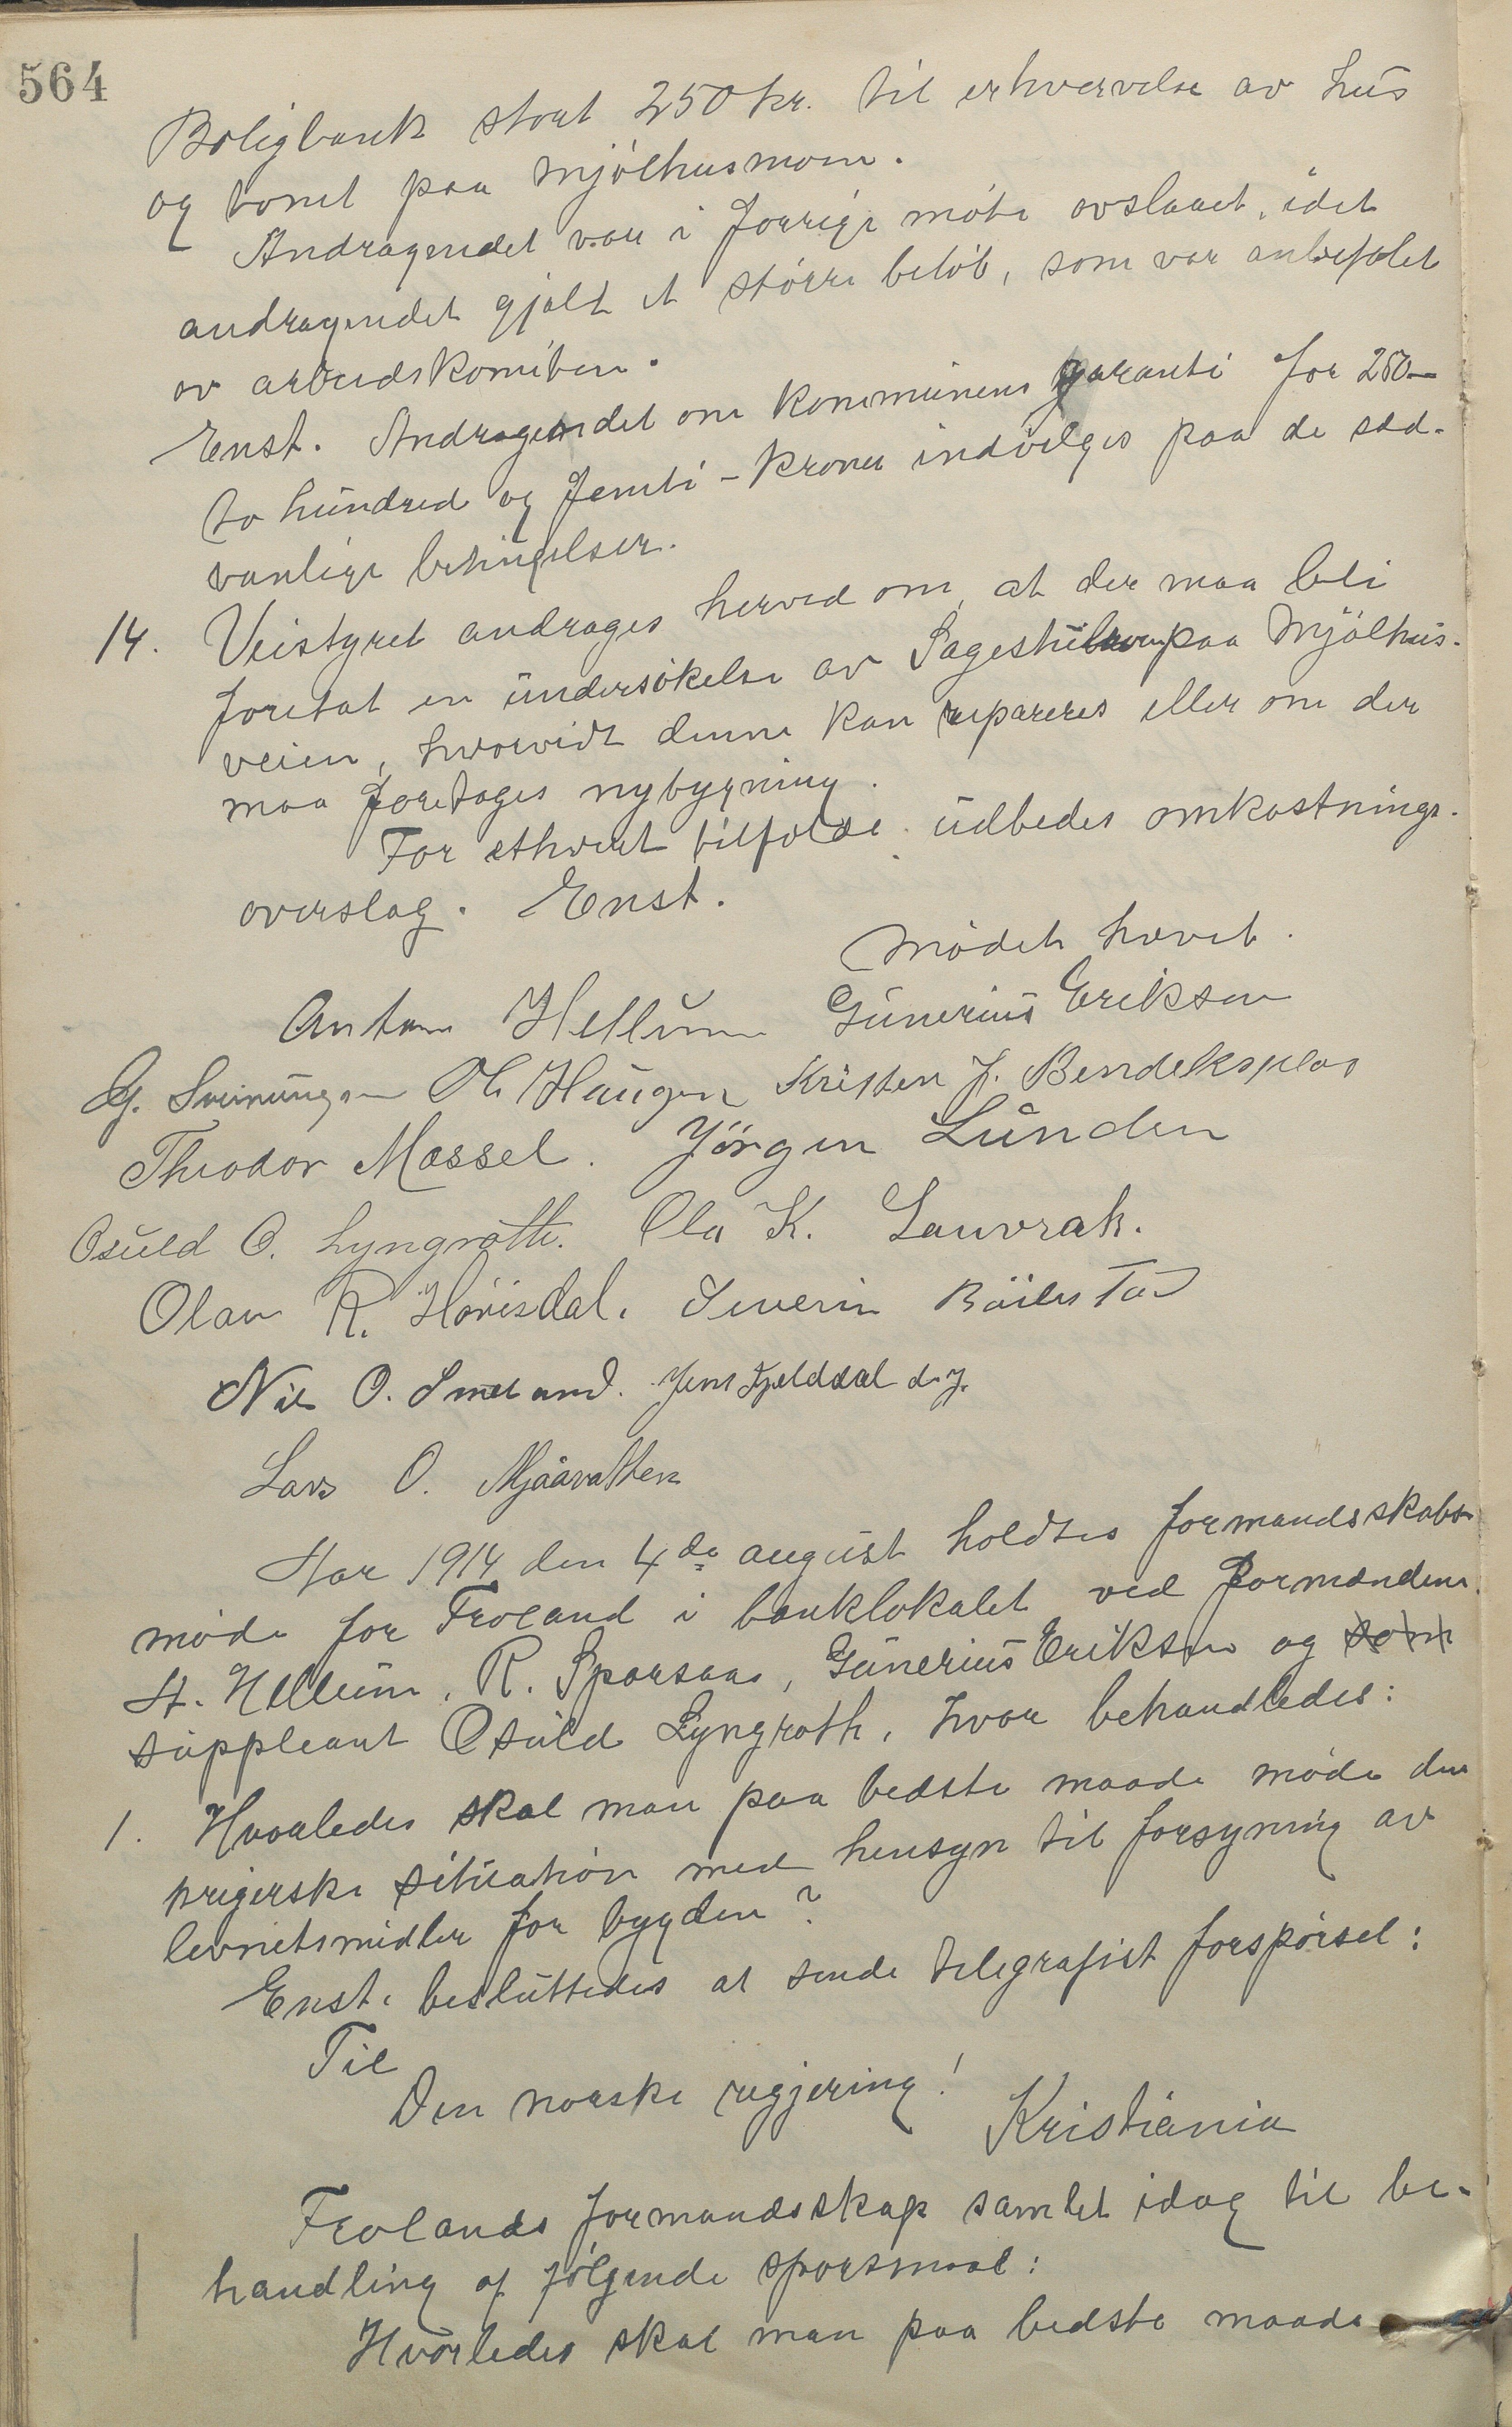 564
Boligbank stort 250 kr. til erhvervelse av hus
og tomt paa Mjölhusmoen.
Andragendet var i forrige möte avslaaet, idet
andragendet gjalt et större belöb, som var anbefalet
av arbeidskomiteen.
Enst. Andragendet om kommunens garanti for 250-
to hundred og femti - kroner indvilges paa de sæd-
vanlige betingelser.
14. Veistyret andrages herved om, at der maa bli
foretat en undersökelse av paa Mjölhus-
veien, hvorvidt denne kan repareres eller om der
maa foretages nybygning.
For ethvert tilfælde udbedes omkostnings-
overslag. Enst.
Mödet hævet.
Anton Hellum Gunerius Eriksen
G. Sveinungsen Ol Haugen Kristen J. Bendiksplas
Theodor Messel. Jörgen Lunden
Osuld O. Lyngroth. Ola K. Lauvrak.
Olav R. Hövisdal. Severin Böilestad
Nils O. Smeland. Jens Fjelddal d.y.
Lars O. Mjaavatten
Aar 1914 den 4de august holdtes formandsskabs-
möde for Froland i banklokalet ved formændene
A. Hellum, R. Sparsaas, Gunerius Eriksen og som
suppleant Osuld Lyngroth, hvor behandledes:
1. Hvorledes skal man paa bedste maade möde den
krigerske situation med hensyn til forsyning av
levnetsmidler for bygden?
Enst. besluttedes at sende telegrafisk forspörsel:
Til
Den norske regjering!
Kristiania
Frolands formandsskap samlet idag til be-
handling af fölgende sporsmaal:
Hvorledes skal man paa bedste maade